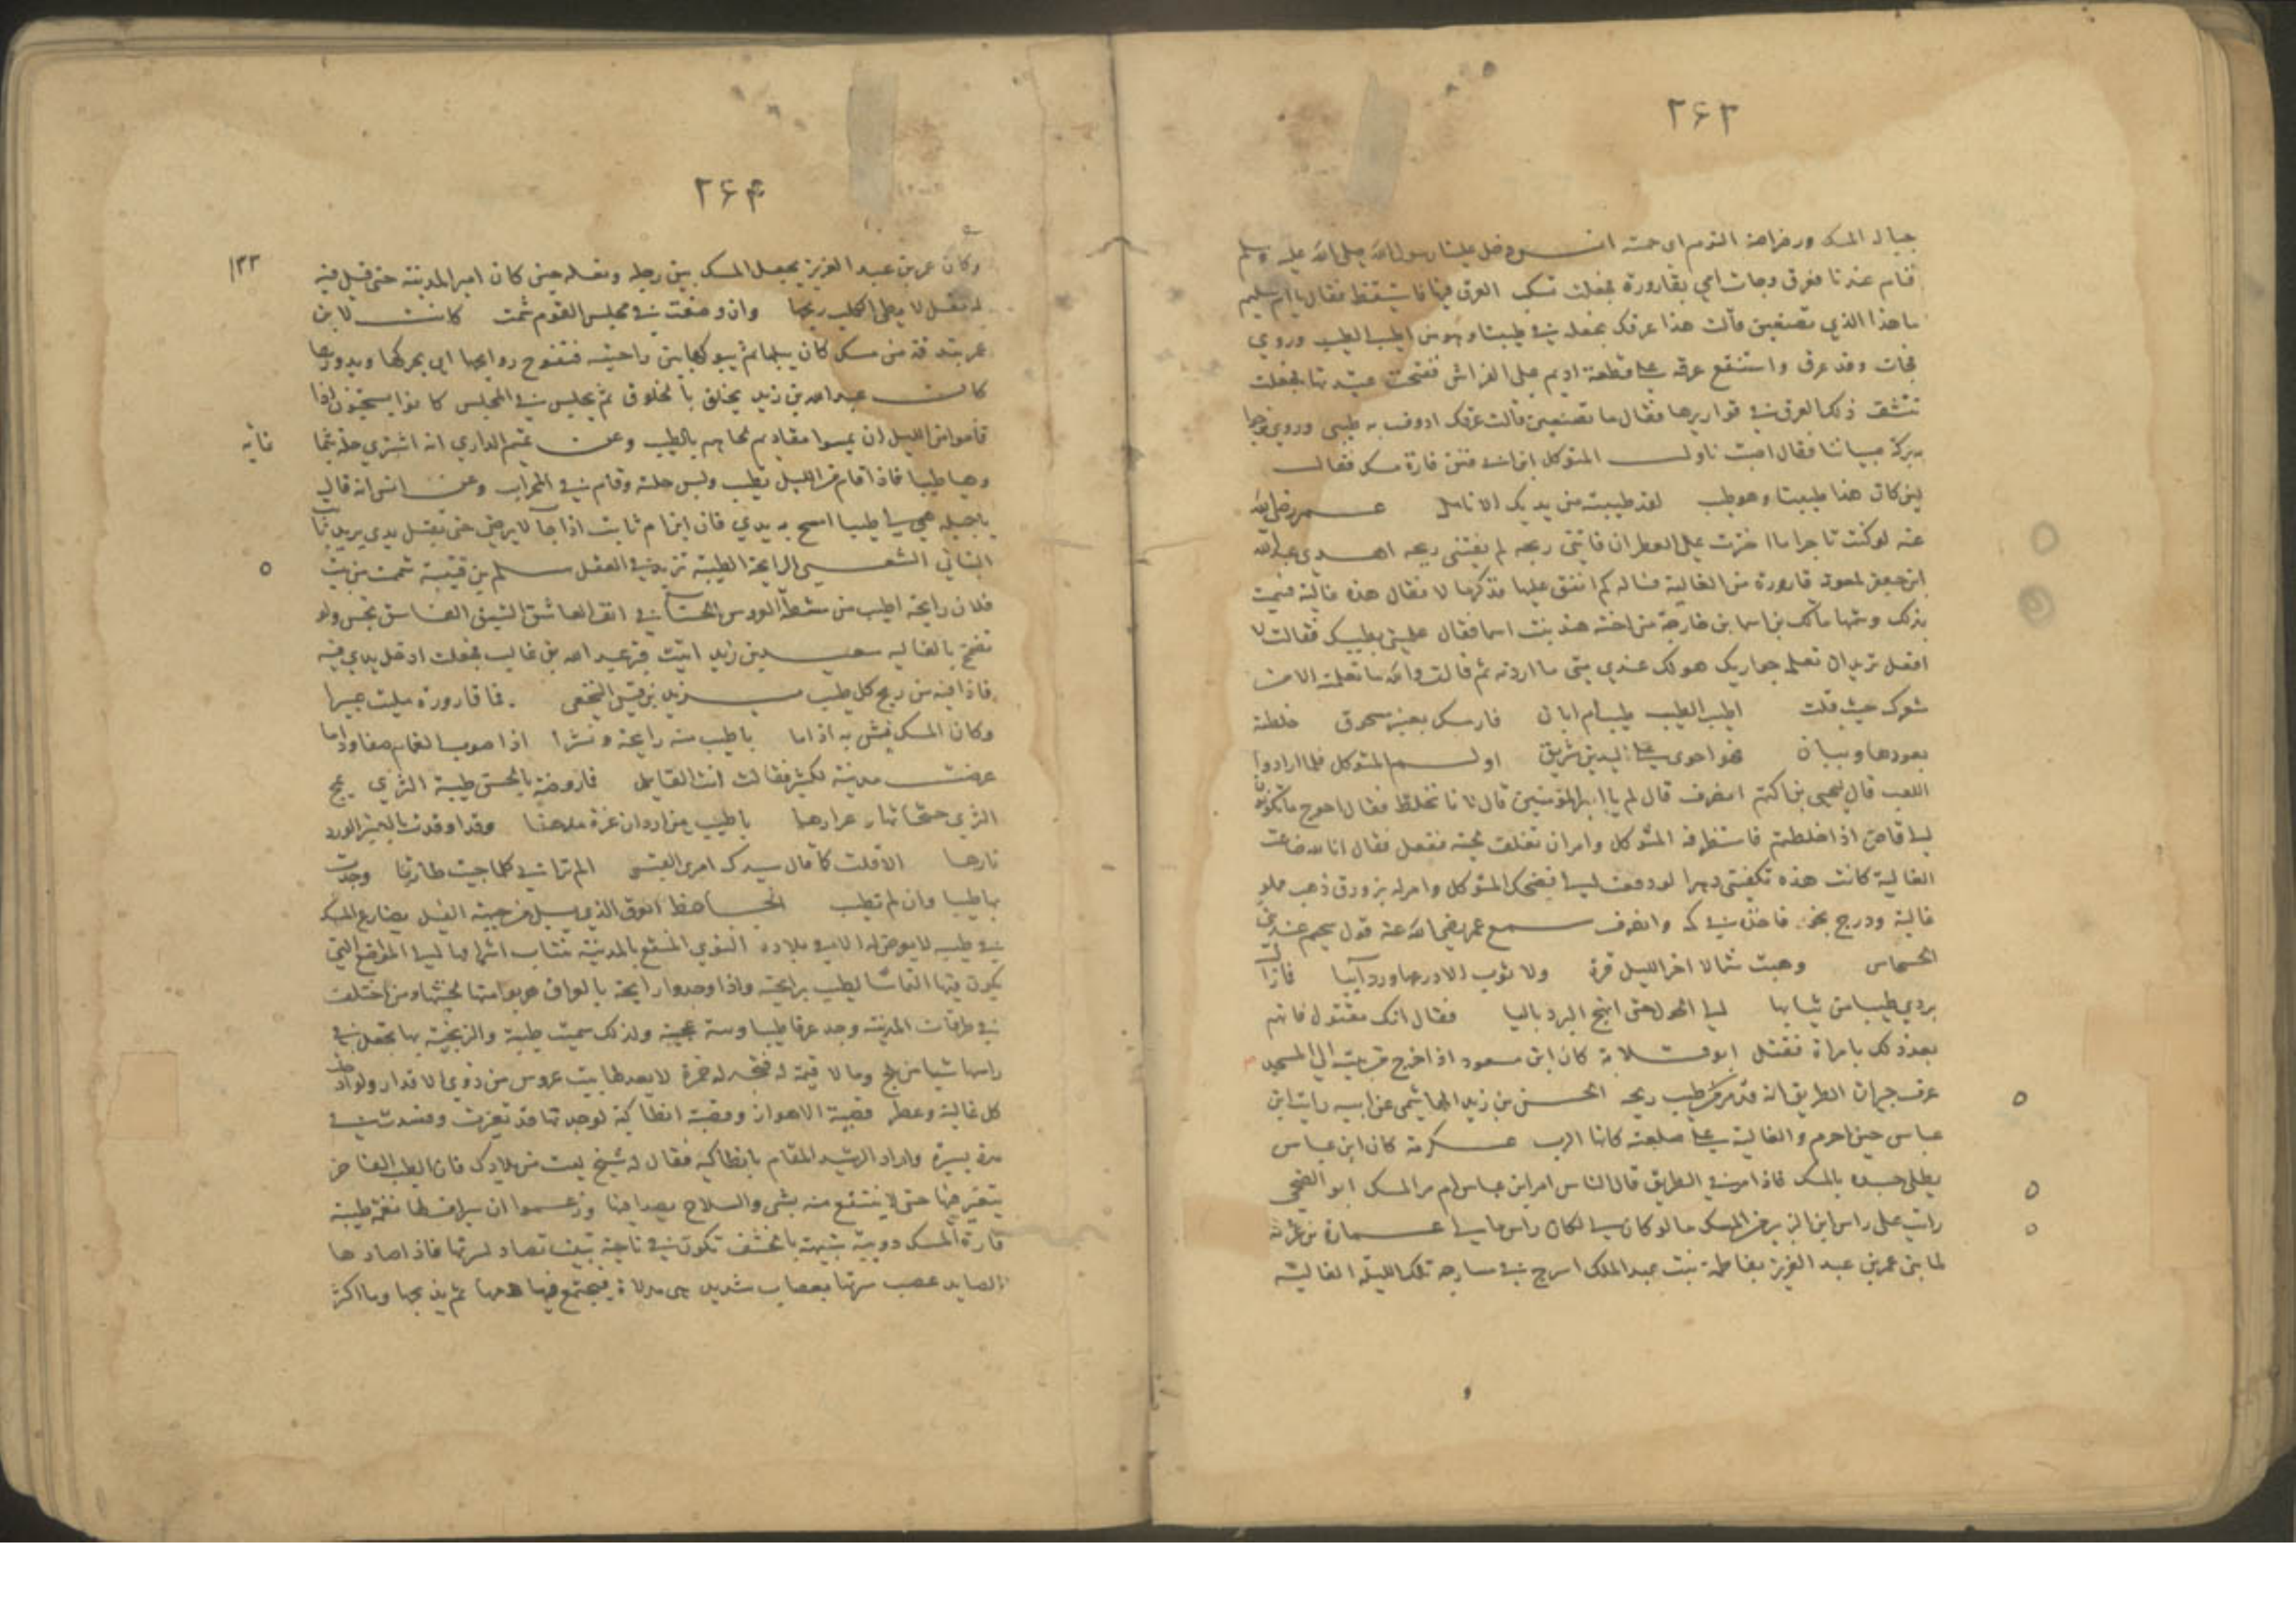 ٢۶٣
جبال المسك ورضراضه التوم اي حبته انس دخل علينا رسول الله صلى الله عليه وسلم
فنام عندنا فعرق وجات امي بقارورة فجعلت تسكب العرق فيها فاستيقظ فقال يا ام سليم
ما هذا الذي تصنعين قالت هذا عرقك نجعله في طيبنا وهو من اطيب الطيب وروي
فجات وقد عرق واستنقع عرقه على قطعة اديم على الفراش ففتحت عتيدتها فجعلت
تنشف ذلك العرق في قواريرها فقال ما تصنعين قالت عرقك ادوف به طيبي وروي نرجوا
بركة صبياننا فقال اصبت ناول المتوكل فارة مسك فقال
لين كان هذا طيبنا وهو طيب لقد طيبته من يديك الانامل عمر رضي الله
عنه لو كنت تاجرا ما اخترت على العطر ان فاتني ربحه لم يفتني ريحه اهدى عبد الله
ابن جعفر لمعوية قارورة من الغالية فساله كم انفق عليها فذكر مالا فقال هذه غالية فسميت
بذلك وشمها مالك بن اسما بن خارجة من اخته هند بنت اسما فقال علميني طيبك فقالت لا
افعل تريد ان تعلمه جواريك هو لك عندي متى ما اردته ثم قالت والله ما تعلمته الا من
شعرك حيث قلت اطيب الطيب طيب ام ابان فار مسك بعنبر مسحوق خلطته
بعودها وببان فهو احوى على اليدين شريق اولم المتوكل فلما ارادوا
اللعب قال ليحيى بن اكثم انصرف قال لم يا امير المؤمنين قال لانا نخلط فقال احوج ما تكونون
الى قاض اذا خلطتم فاستظرفه المتوكل وامر ان تغلف لحيته ففعل فقال انا لله ضاعت
الغالية كانت هذه تكفيني دهرا لو دفعت الي فضحك المتوكل وامر له بزورق ذهب مملو
غالية ودرج بخور فاخذه في كمه وانصرف سمع عمر رضي الله عنه قول سحيم عبد بني
الحسحاس وهبت شمالا اخر الليل قرة ولا ثوب الا درعها وردائيا فما زال
بردي طيبا من ثيابها الى الحول حتى انهج البرد باليا فقال انك مقتول فاتهم
بعد ذلك بامراة فقتل ابو قلابة كان ابن مسعود اذا خرج من بيته الى المسجد
عرف جيران الطريق انه قد مر من طيب ريحه الحسن بن زيد الهاشمي عن ابيه رايت ابن
عباس حين احرم والغالية على صلعته كانها الرب عكرمة كان ابن عباس
يطلي جسده بالمسك فاذا مر في الطريق قال الناس امر ابن عباس ام مر المسك ابو الضحى
رايت على راس ابن الزبير من المسك ما لو كان لي لكان راس مالي عمارة بن غزية
لما بنى عمر بن عبد العزيز بفاطمة بنت عبد الملك اسرج في مسارجه تلك الليلة الغالية
٢۶۴
١٣٣
وكان عمر بن عبد العزيز يجعل المسك بين رجليه ونعله حين كان امير المدينة حتى قيل فيه
له نعل لا يطبى الكلب ريحها وان وضعت في مجلس القوم شمت كانت لابن
عمر بندقة من مسك كان يبلها ثم يبوكها بين راحتيه فتفوح روايحها اي يحركها ويدورها
كان عبد الله بن زيد يتخلق بالخلوق ثم يجلس في المجلس كانوا يستحبون اذا
قاموا من الليل ان يمسوا مقاديم لحاهم بالطيب وعن تميم الداري انه اشترى حلة بثما
نمايه
وهيا طيبا فاذا قام من الليل تطيب ولبس حلته وقام في المحراب وعن انس انه قال
يا جميلة هيئي لي طيبا امسح به يدي فان ابن ام ثابت اذا جا لا يرضى حتى يقبل يدي يريد ثابتا
البناني الشعبي الرايحة الطيبة تزيد في العقل سلم بن قتيبة شممت من بيت
فلان رايحة اطيب من مشطة العروس الحسنا في انف العاشق الشبق الفاسق نجس ولو
تضمخ بالغاليه سعيد بن زيد اتيت قبر عبد الله بن غالب فجعلت ادخل يدي فيه
فاذا فيه من ريح كل طيب يزيد بن قيس النخعي فما قارورة مليت عبيرا
وكان المسك فيش به اذا ما باطيب منه رايحة ونشرا اذا صوب الغمام
عرضت مدينية لكثير فقالت انت القايل فما روضة بالحسن طيبة الثرى يمج
الندى جثجاثها وعرارها باطيب من اردان عزة موهنا وقد اوقدت بالعنبر الورد
نارها الا قلت كما قال سيدك امرؤ القيس الم ترياني كلما جيت طارقا وجدت
بها طيبا وان لم تطيب الجاحظ العرق الذي يسيل من جبهة الفيل يضارع المسك
في طيبه لا يعرض له الا في بلاده النوى المنقع بالمدينة تنتاب اشرافها الى المواضع التي
يكون فيها التماسا لطيب رايحته واذا وجدوا رايحة بالعراق هربوا منها لخبثها ومن اختلف
في طرقات المدينة وجد عرقا طيبا وبنة عجيبة ولذلك سميت طيبة والزنجية بها تجعل في
راسها شيا من بلح وما لا قيمة له فتجد له خمرة لا يعدلها بيت عروس من ذوي الاقدار ولو ادخلت
كل غالية وعطر قصبة الاهواز وقصبة انطاكية لوجدتها قد تغيرت وفسدت في
مدة يسيرة واراد الرشيد المقام بانطاكية فقال له شيخ ليست من بلادك فان الطيب الفاخر
يتغير فيها حتى لا ينتفع منه بشي والسلاح يصدا فيها وزعموا ان سيرافطا نغمة طيبة
فارة المسك دويبة شبيهة بالخشف تكون في ناحية تبت تصاد لسرتها فاذا صادها
الصايد عصب سرتها بعصاب شديد وهي مدلاة فيجتمع فيها دمها ثم يذبحها وما اكثر